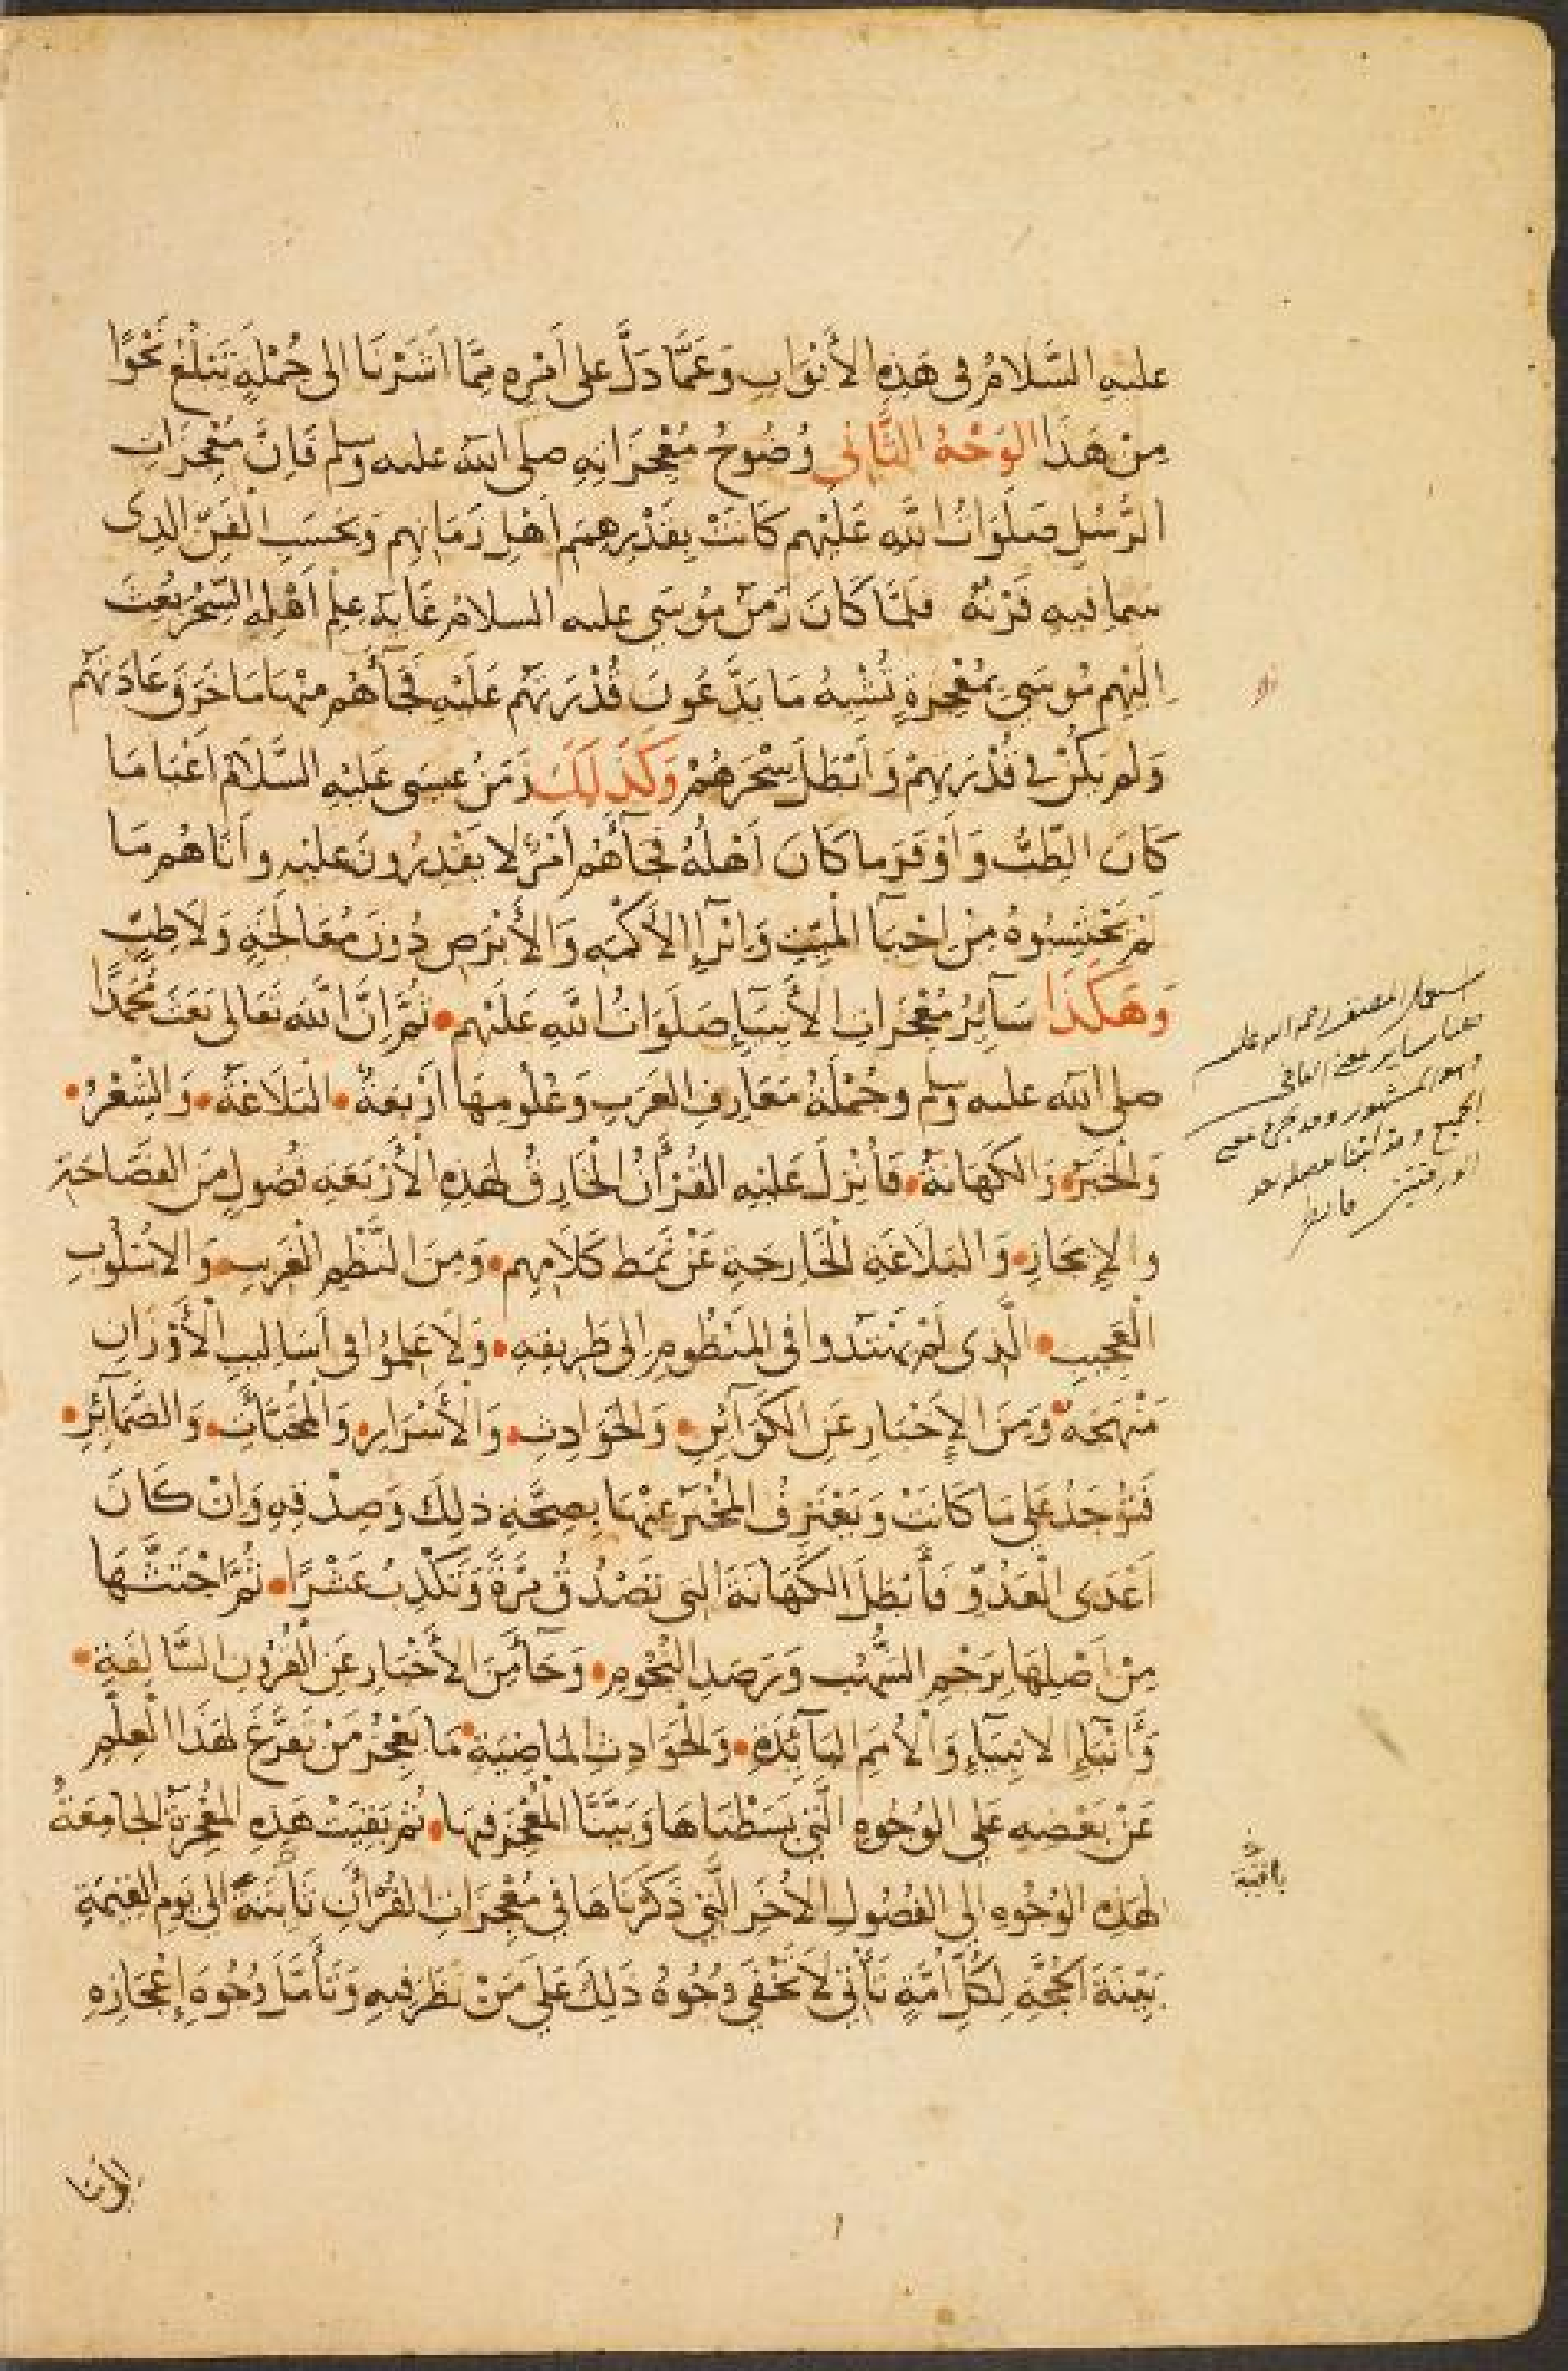 عليه السَّلامُ في هَذِهِ الأَبْوَابِ وَعَمَّا دَلَّ على أَمْرِهِ مِمَّا اَشَرْنَا الى جُمْلَةٍ تَبْلُغ نَحْوًا
مِنْ هَذَا الوَجْهُ الثَّانِي وُضُوحُ مُعْجِزَاتِهِ صلى الله عليه وسلم فَاِنَّ مُعْجِزَاتِ
الرُّسُلِ صَلَوَاتُ اللهِ عَلَيْهِم كَانَتْ بِقَدْرِ هِمَمِ اَهْلِ زَمَانِهِم وَبِحَسَبِ الْفَنِّ الذِى
سما فيه قَرْنُهُ فلمَّا كَانَ زَمَنُ مُوسَى عليه السلامُ غَايَةَ عِلْمِ اَهْلِهِ السِّحْرُ بُعِثَ
اِلَيْهِم مُوسَى بِمُعْجِزَةٍ تُشْبِهُ مَا يَدَّعُونَ قُدْرَتَهُم عَلَيْهِ فَجَآءَهُم مِنْهَا مَا خَرَقَ عَادَتَهُم
وَلم يَكُنْ فى قُدْرَتِهِمْ وَاَبْطَلَ سِحْرَهُمْ وَكَذَلِكَ زَمَنُ عيسَى عَلَيْهِ السَّلَامُ اَغْنَا مَا
كَانَ الطِّبُّ وَاَوْفَرَ ما كَانَ اَهْلُهُ فَجَآءَهُم اَمْرٌ لا يَقْدِرُونَ عليْهِ وَاَتَاهُم مَا
لَمْ يَحْتَسِبُوهُ مِنْ اِحْيَآ الْمَيِّتِ وَاِبْرَآءِ الأَكْمَهِ وَالأَبْرَصِ دُونَ مُعَالَجَةٍ وَلَا طِبٍّ
وَهَكَذَا سَآيِرُ مُعْجِزَاتِ الأَنْبِيَآءِ صَلَوَاتُ اللهِ عَلَيْهِم • ثُمَّ اِنَّ اللهَ تَعَالى بَعَثَ مُحَمَّدًا
صلى الله عليه وسلم وجُمْلَةُ مَعَارِفِ العَرَبِ وَعُلُومِهَا اَرْبَعَةٌ • البَلَاغَةُ • وَالشِّعْرُ •
وَالْخَبَرُ • وَالكَهَانَةُ • فَأُنْزِلَ عَلَيْهِ القُرْأَنُ الْخَارِقُ لِهَذِهِ الأَرْبَعَةِ فُصُولٍ مِنَ الفَصَاحَةِ
والإِيجَازِ • وَالبَلَاغَةِ الْخَارِجَةِ عَنْ نَمَطِ كَلَامِهِم • وَمِنَ النَّظْمِ الْغَرِيبِ • وَالاُسْلُوبِ
الْعَجِيبِ • الَّذِى لَمْ يَهْتَدُوا فى المَنْظُومِ الى طَرِيقِهِ • وَلَا عَلِمُوا فى اَسَالِيبِ الْأَوْزَانِ
مَنْهَجَهُ • وَمِنَ الإِخْبَارِ عَنِ الكَوَآئِنِ • وَالحَوَادِثِ • وَالْأَسْرَارِ • وَالْمُخَبَّآتِ • وَالضَّمَآئِرِ •
فَتُوجَدُ عَلَى مَا كَانَتْ وَيَعْتَرِفُ المُخْبَرُ عَنْهَا بِصِحَّةِ ذلِكَ وَصِدْقِهِ وَاِنْ كَانَ
اَعْدَى الْعَدُوِّ فَأَبْطَلَ الكَهَانَةَ التِى تَصْدُقُ مَرَّةً وَتَكْذِبُ عَشْرًا • ثُمَّ اجْتَثَّهَا
مِنْ اَصْلِهَا بِرَجْمِ الشُّهُبِ وَرَصَدِ النُّجُومِ • وَجَآءَ مِنَ الأَخْبَارِ عَنِ الْقُرُونِ السَّالِفَةِ •
وَأَنْبَآءِ الانبِيَآءِ وَالأُمَمِ البَآئِدَةِ • وَالْحَوَادِثِ المَاضِيَةِ • مَا يَعْجِزُ مَنْ تَفَرَّغَ لِهَذَا الْعِلْمِ
عَنْ بَعْضِهِ عَلَى الوُجُوهِ الَّتى بَسَطْنَاهَا وَبَيَّنَّا الْمُعْجِزَ فيهَا • ثُمَّ بَقِيَتْ هَذِهِ المُعْجِزَةُ الجَامِعَةُ
لِهَذِهِ الوُجُوهِ الى الفُصُولِ الأُخَرِ الَّتى ذَكَرْنَاهَا فى مُعْجِزَاتِ القُرْأَنِ ثَابِتَةً الى يَومِ القِيَمَةِ
بَيِّنَةَ الحُجَّةِ لِكُلِّ اُمَّةٍ تَأْتِى لَا تَخْفَى وُجُوهُ ذَلِكَ عَلَى مَنْ نَظَرَ فِيهِ وَتَأَمَّلَ وُجُوهَ إِعْجَازِهِ
المصنف رحمه الله
وهو المشهور
الجميع
باقية